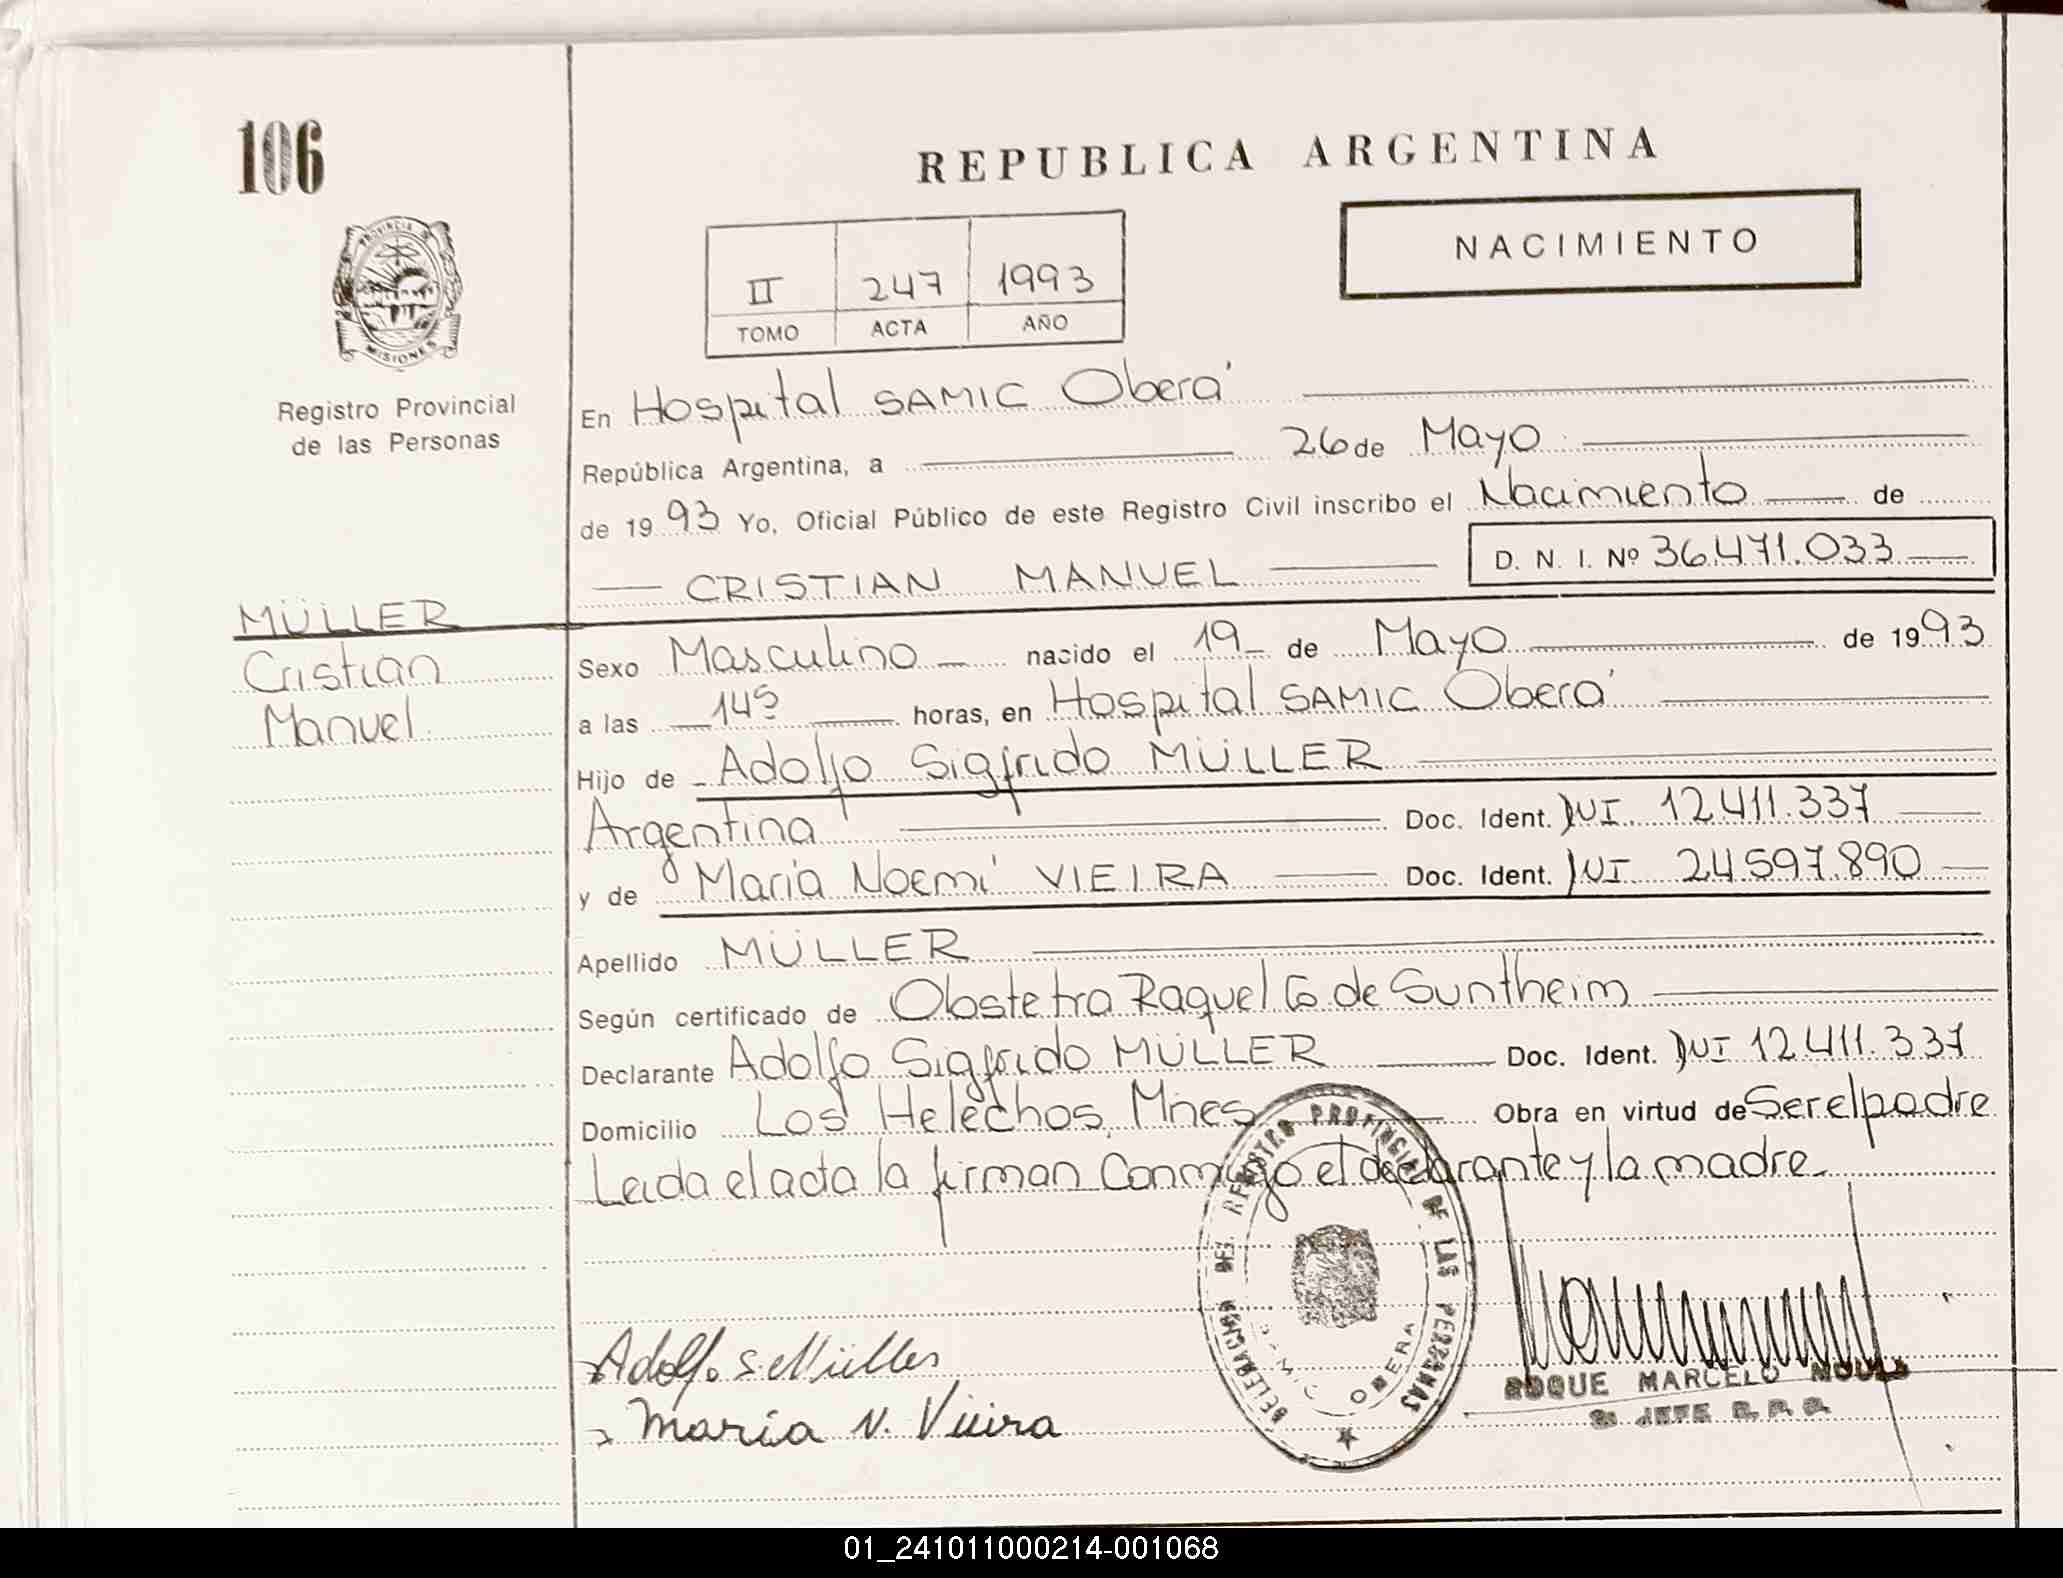 106
REPUBLICA ARGENTINA
NACIMIENTO
II 247 1993
TOMO ACTA AÑO
PROVINCIA DE MISIONES
Registro Provincial
de las Personas
En Hospital SAMIC Oberá
República Argentina, a 26 de Mayo
de 1993 Yo, Oficial Público de este Registro Civil inscribo el Nacimiento de
D. N. I. Nº 36.471.033
CRISTIAN MANUEL
MÜLLER
Cristian
Manuel
Sexo Masculino nacido el 19 de Mayo de 1993
a las 14 horas, en Hospital SAMIC Oberá
Hijo de Adolfo Sigfrido MÜLLER
Argentina Doc. Ident. DNI 12.411.337
y de María Noemí VIEIRA Doc. Ident. DNI 24.597.890
Apellido MÜLLER
Según certificado de Obstetra Raquel G de Suntheim
Declarante Adolfo Sigfrido MÜLLER Doc. Ident. DNI 12.411.337
Domicilio Los Helechos, Mnes Obra en virtud de Ser el padre
Leida el acta la firman Conmigo el declarante y la madre
DELEGACION DEL REGISTRO PROVINCIAL DE LAS PERSONAS
OBERA
Adolfo S. Müller
María N. Vieira
ROQUE MARCELO
JEFE
01_241011000214-001068